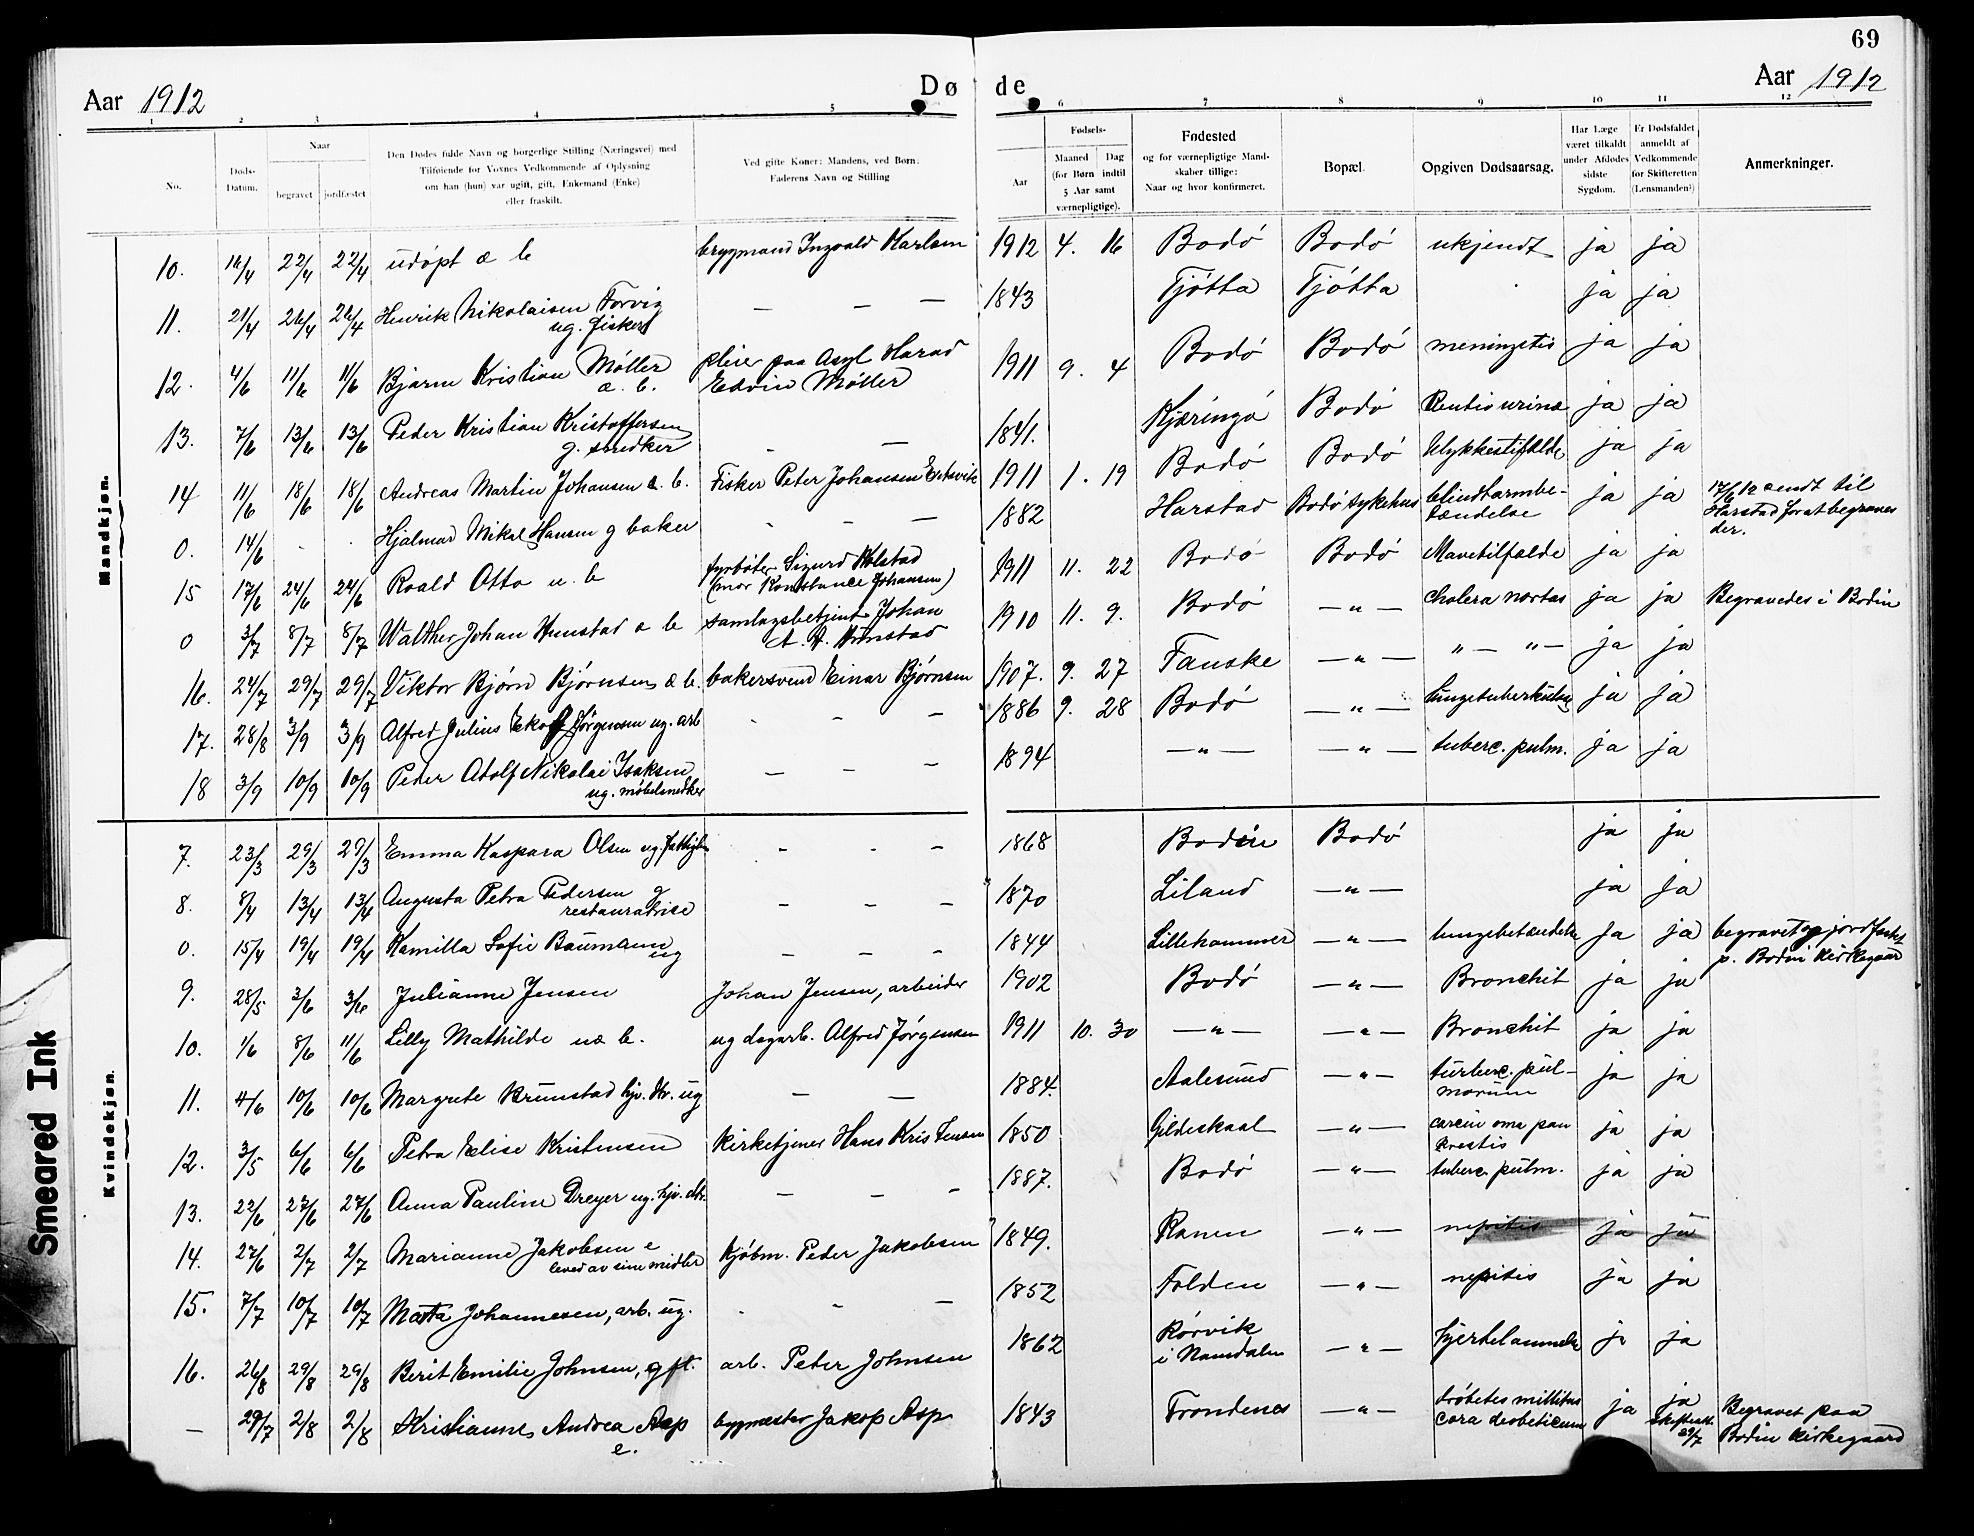 69
Aar 1912
Døde
Aar 1912
1 2 3 4 5 6 7 8 9 10 11 12
No.
Døds-Datum.
Naar
begravet
jordfæstet
Den Dødes fulde Navn og borgerlige Stilling (Næringsvei) med
Tilføiende for Voxnes Vedkommende af Oplysning
om han (hun) var ugift, gift, Enkemand (Enke)
eller fraskilt.
Ved gifte Koner: Mandens, ved Børn:
Faderens Navn og Stilling
Fødsels-
Aar
Maaned
Dag
(for Børn indtil
5 Aar samt
værnepligtige).
Fødested
og for værnepligtige Mand-
skaber tillige:
Naar og hvor konfirmeret.
Bopæl.
Opgiven Dødsaarsag.
Har Læge
været tilkaldt
under Afdødes
sidste
Sygdom.
Er Dødsfaldet
anmeldt af
Vedkommende
for Skifteretten
(Lensmanden?)
Anmerkninger.
Mandkjøn.
10. 16/4 22/4 22/4 udøpt æ b brygmand Ingvald Karlsen 1912 4. 16 Bodó Bodó ukjendt ja ja
11. 21/4 26/4 26/4 Henrik Nikolaisen Forvig — — — 1843 Tjótta Tjótta ja ja
ug. fisker
12. 4/6 11/6 11/6 Bjarne Kristian Møller pleier paa Asyl Harad 1911 9. 4 Bodó Bodó meningitis ja ja
æ. b. Edvin Møller
13. 7/6 13/6 13/6 Peder Kristian Kristoffersen — — 1841. Kjæringó Bodó Rentio urinæ ja ja
g. snedker
14 11/6 18/6 18/6 Andreas Martin Johansen æ. b. Fisker Peter Johansen 1911 1. 19 Bodó Bodó Ulykkestifælde ja ja
0. 14/6 - - Hjalmar Mikal Hansen g baker - — — 1882 Harstad Bodó sykehus blindtarmbe-
tændelse ja ja 17/6 12 sendt til
Harstad for at begraves
der.
15 17/6 24/6 24/6 Roald Otto u. b fyrbøter Sigurd Kolstad 1911 11. 22 Bodó Bodó Mavetilfælde ja ja
(mor Konstance Johansen)
0 3/7 8/7 8/7 Walther Johan Hunstad æ b samlagsbetjent Johan 1910 11. 9. Bodó — " — cholera nostas ja ja Begravedes i Bodin
A. A. Hunstad
16. 24/7 29/7 29/7 Viktor Bjørn Bjørnsen æ b. bakersvend Einar Bjørnsen 1907. 9. 27 Fauske — " — " — " — ja ja
17. 28/8 3/9 3/9 Alfred Julius Jørgensen ug. arb - - — 1886 9. 28 Bodó — " — Lungetuberkulose ja ja
18 3/9 10/9 10/9 Peder Adolf Nikolai Isaksen — — — 1894 — " — — " — tuberc. pulm. ja ja
ug. møbelsnedker
Kvindekjøn.
7. 23/3 29/3 29/3 Emma Kaspara Olsen ug. - - — 1868 Bodin Bodó ja ja
8. 8/4 13/4 13/4 Augusta Petra Pedersen g — — — 1870 Liland — " — ja ja
restauratrise
0. 15/4 19/4 19/4 Kamilla Sofie Baumann — — — 1844 Lillehammer — " — lungebetændelse ja ja begravet og jordfæstet
ug p. Bodin Kirkegaar
9. 28/5 3/6 3/6 Julianne Jensen Johan Jensen, arbeider 1902 Bodó — " — Bronchit ja ja
10. 1/6 8/6 11/6 Lilly Mathilde uæ b. ug dagarb. Alfred Jørgensen 1911 10. 30 — " — — " — Bronchit ja ja
11. 4/6 10/6 10/6 Margrete Brunstad hjv. dtr. ug — — 1884. Aalesund — " — turberc. pul-
monum ja ja
12. 3/5 6/6 6/6 Petra Elise Kristensen Kirketjener Hans Kristensen 1850 Gildeskaal — " — carcin oma pan
kreatis ja ja
13. 22/6 27/6 27/6 Anna Pauline Dreyer ug. hjv. dtr. — — — 1887. Bodó — " — tuberc. pulm. ja ja
14. 27/6 2/7 2/7 Marianne Jakobsen e Kjøbm. Peder Jakobsen 1849. Ranen — " — nepitis ja ja
leved av sine midler
15. 7/7 10/7 10/7 Marta Johannesen, arb. ug. - - — 1852 Folden — " — nepitis ja ja
16. 26/8 29/8 29/8 Berit Emilie Johnsen, gft. arb. Peter Johnsen 1862 Rórvik
i Namdalen — " — hjertelammelse ja ja
— 29/7 2/8 2/8 Kristianne Andrea Asp bygmester Jakop Asp 1843 Trondenes — " — ja ja Begravet paa
e. 29/7 Bodin Kirkegaard
Smeared Ink